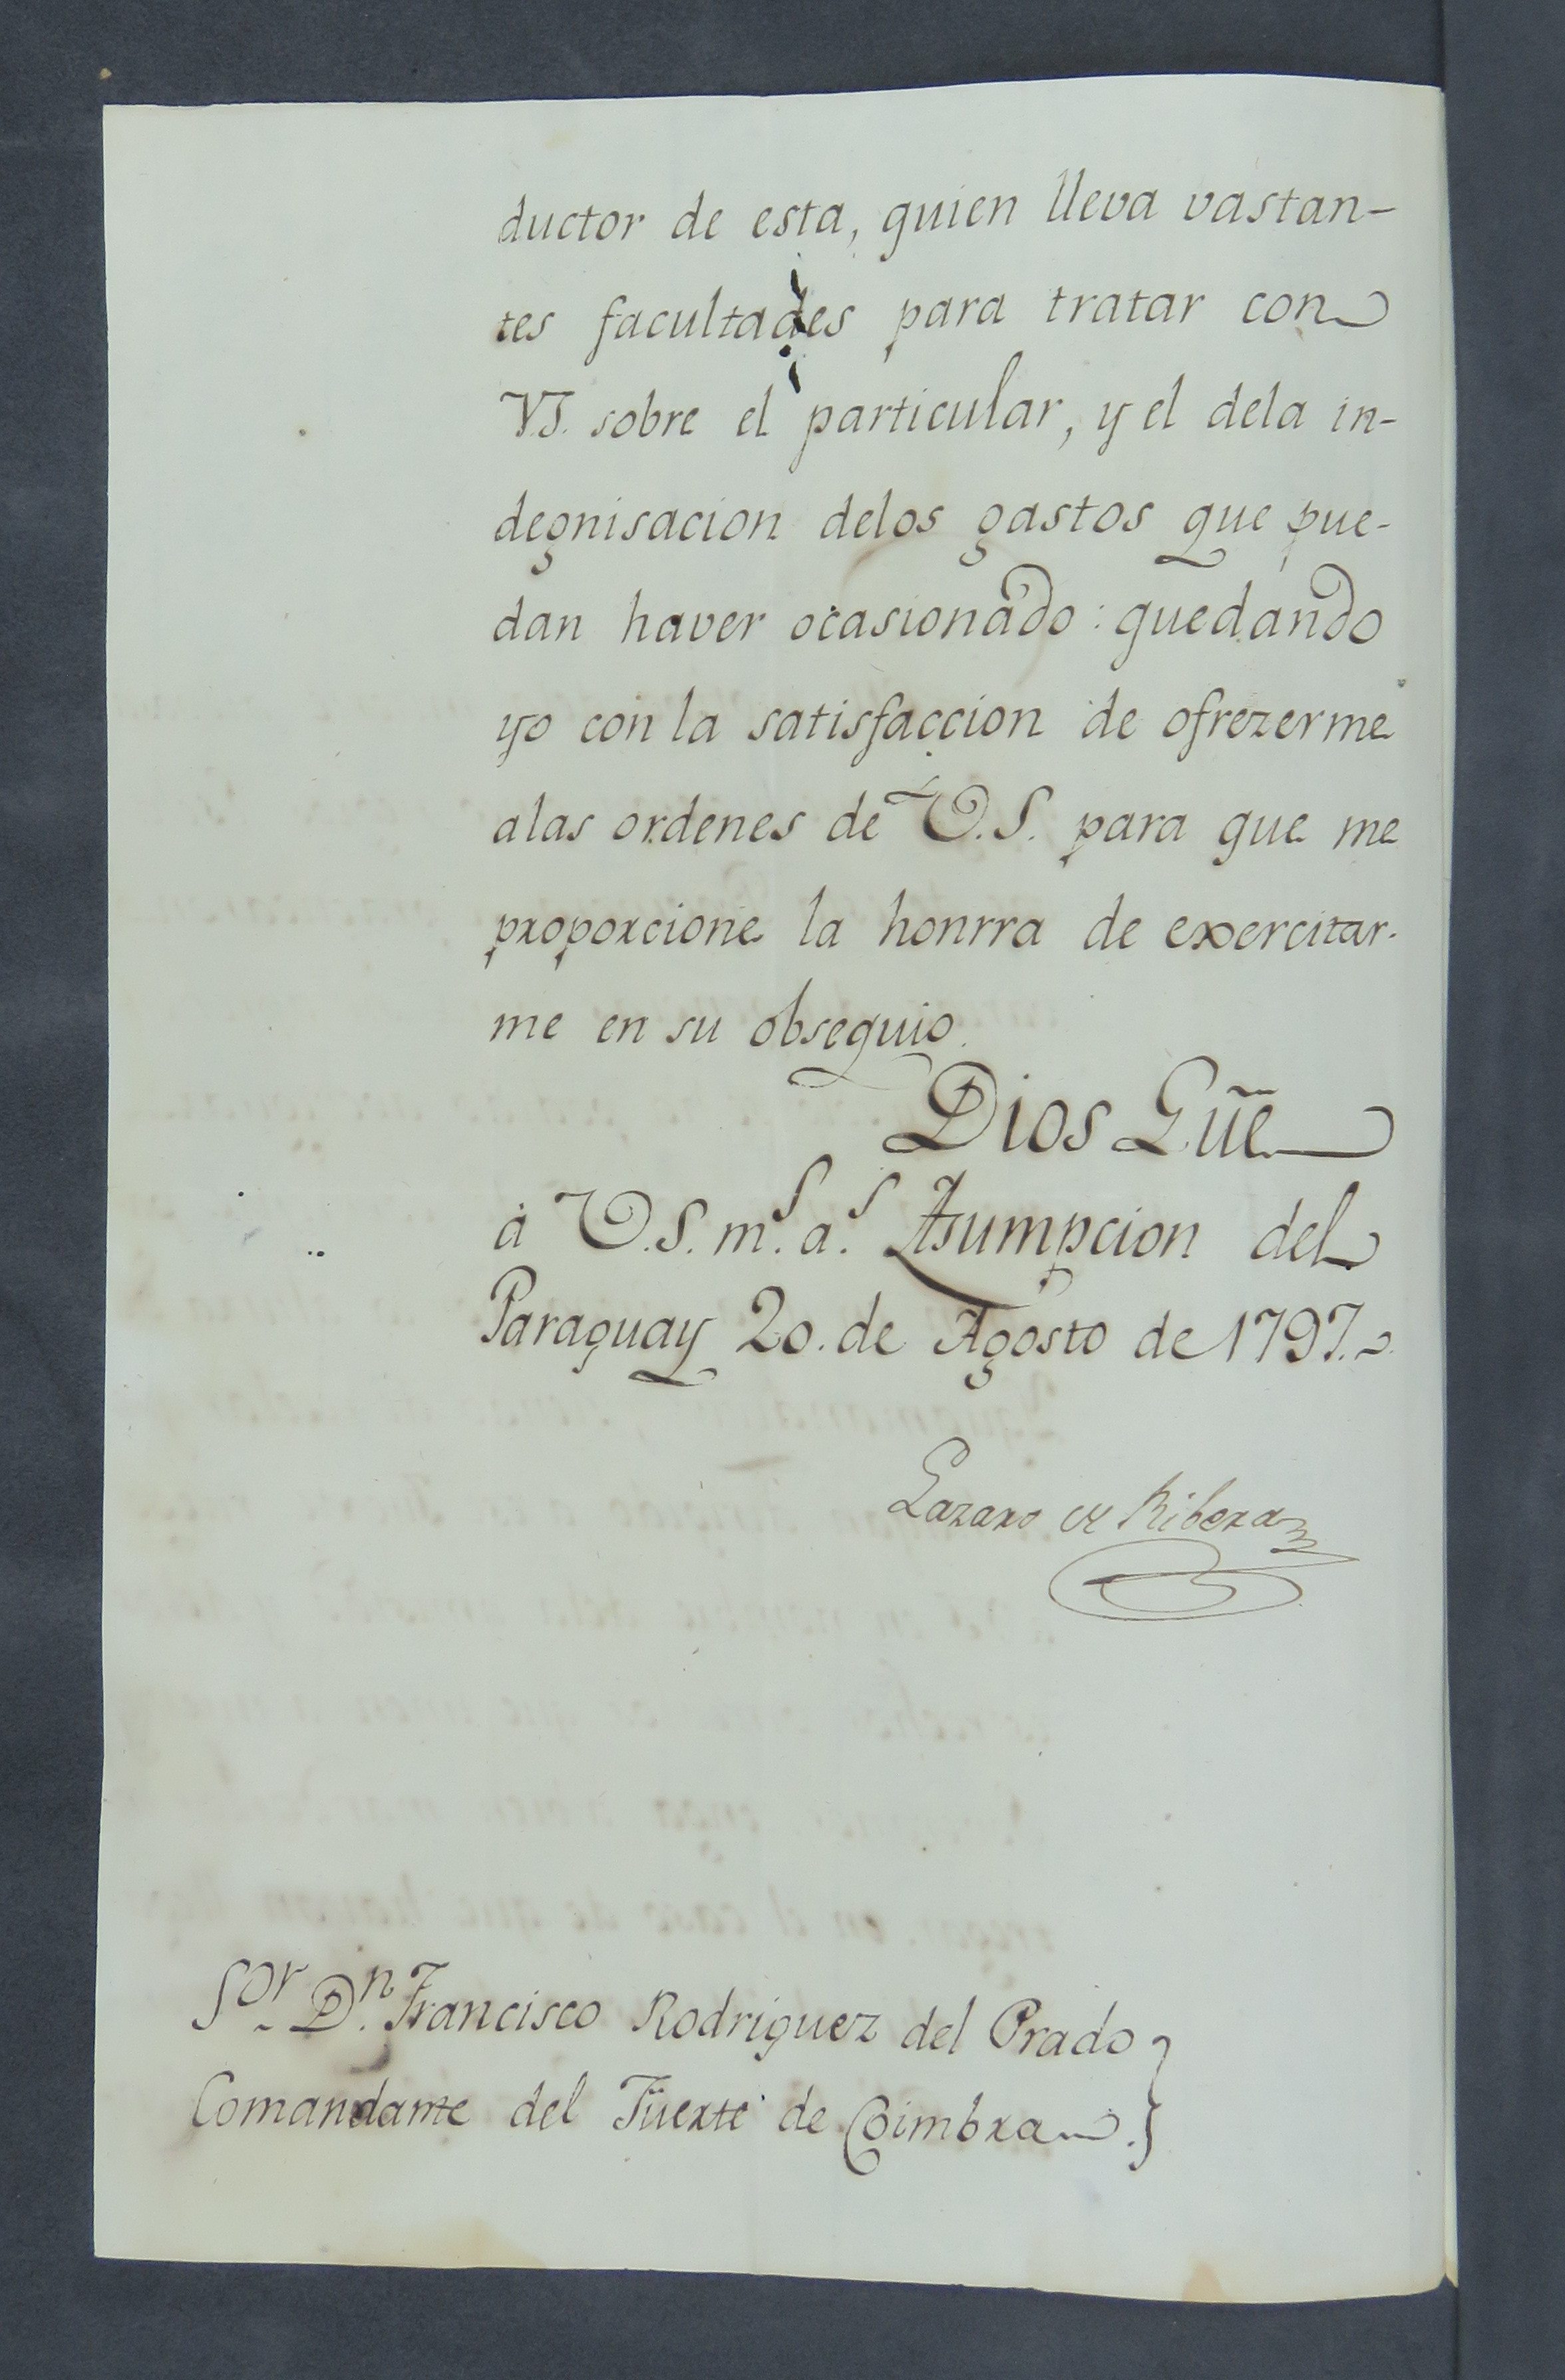 ductor de esta, quien lleva vastan-
tes facultades para tratar con
V.S. sobre el particular, y el dela in-
degnisacion delos gastos que pue-
dan haver ocasionado: quedando
yo con la satisfaccion de ofrezerme
alas ordenes de V.S. para que me
proporcione la honrra de exercitar-
me en su obsequio.
Dios Gũe
á V.S. m.s a.s Asumpcion del
Paraguay 20. de Agosto de 1797.
Lazaro de Ribera
Sor. Dn. Francisco Rodriguez del Prado
Comandante del Fuerte de Coimbra.